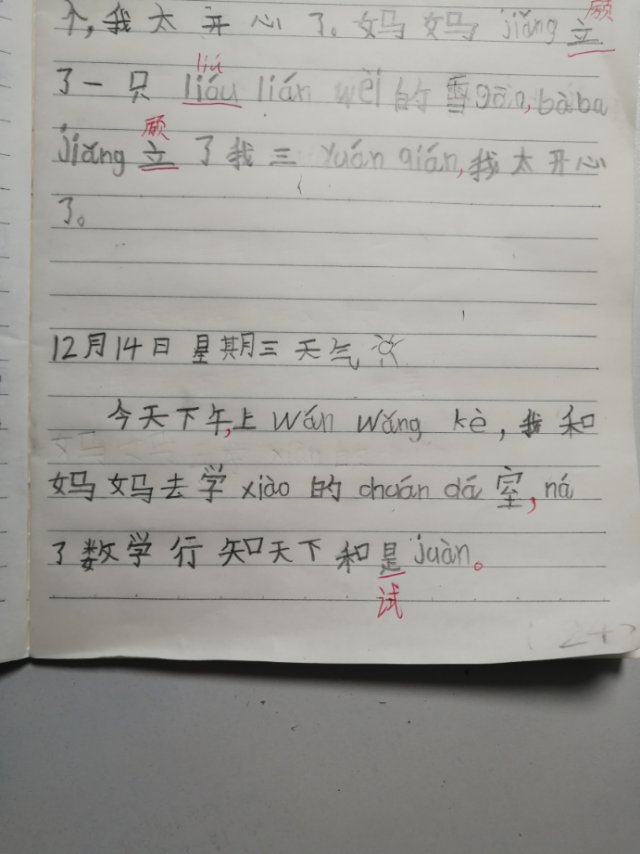 个,我太开心了。妈妈 jiǎng 立
励
了一只 lióu lián wèi 的雪gāo,bàba
liú
jiǎng 立了我三 yuán qián,我太开心
励
了。
12月14日 星期三 天气
今天下午,上 wán wǎng kè,我和
妈妈去学 xiào 的 chuán dá 室,ná
了数学行知天下和是 juàn。
试